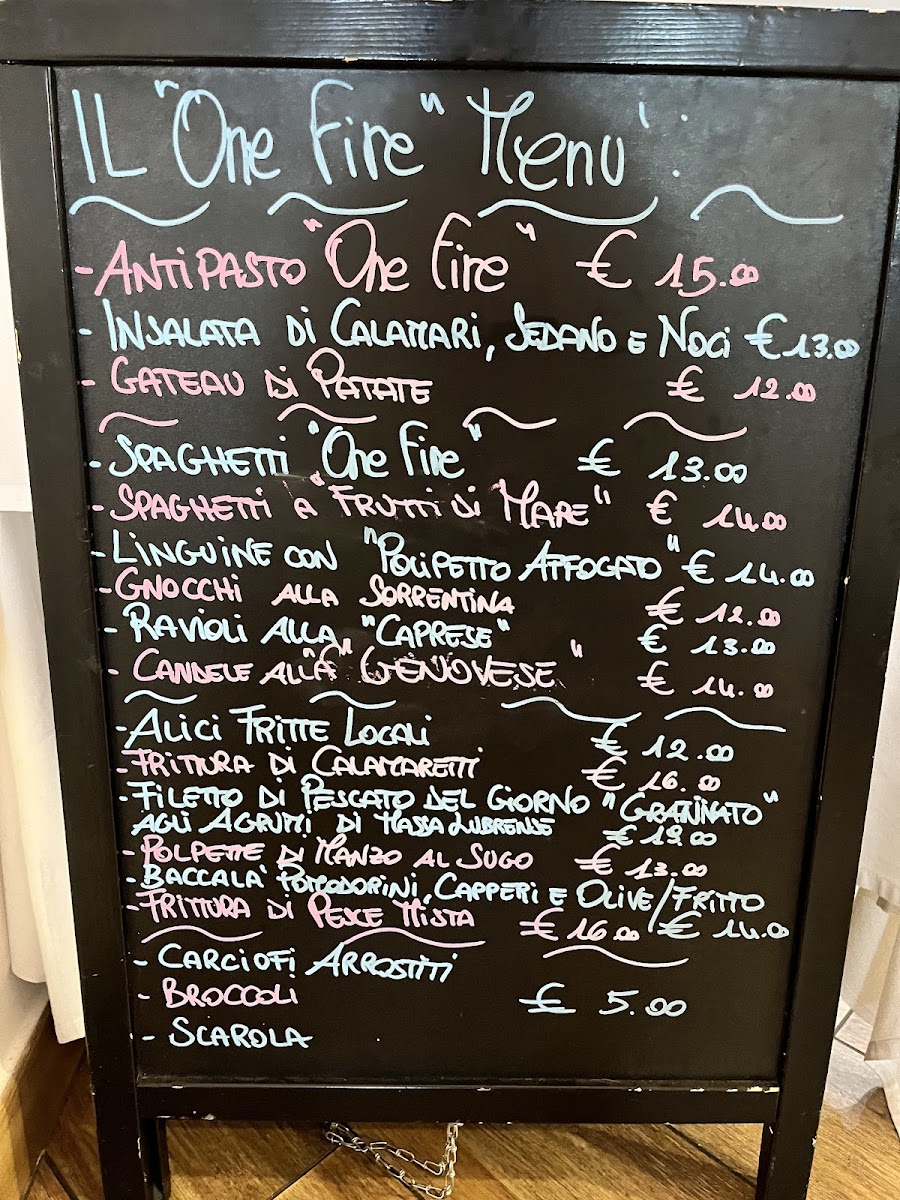 IL "One Fire" Menu':
- ANTIPASTO "One Fire" € 15.00
- INSALATA DI CALAMARI, SEDANO E NOCI € 13.00
- GATEAU DI PATATE € 12.00
- SPAGHETTI "One Fire" € 13.00
- SPAGHETTI A "FRUTTI DI MARE" € 14.00
- LINGUINE CON "POLIPETTO AFFOGATO" € 14.00
- GNOCCHI ALLA SORRENTINA € 12.00
- RAVIOLI ALLA "CAPRESE" € 13.00
- CANDELE ALLA "GENOVESE" € 14.00
- ALICI FRITTE LOCALI € 12.00
- FRITTURA DI CALAMARETTI € 16.00
- FILETTO DI PESCATO DEL GIORNO "GRATINATO"
AGLI AGRUMI DI MASSA LUBRENSE € 19.00
- POLPETTE DI MANZO AL SUGO € 13.00
- BACCALA' POMODORINI, CAPPERI E OLIVE/FRITTO
- FRITTURA DI PESCE MISTA € 16.00 / € 14.00
- CARCIOFI ARROSTITI
- BROCCOLI € 5.00
- SCAROLA